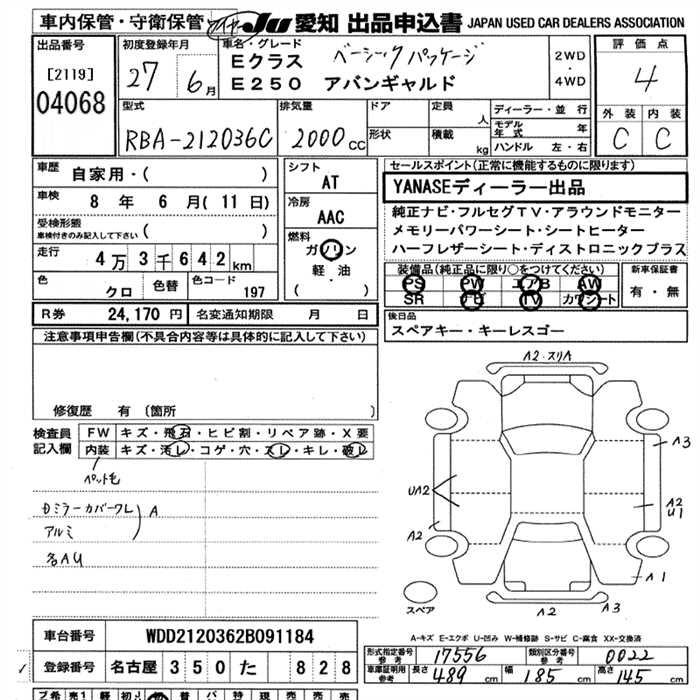 車内保管・守衛保管 JU 愛知 出品申込書 JAPAN USED CAR DEALERS ASSOCIATION
出品番号 [2119] 04068
初度登録年月 27 6月
車名・グレード ベーシックパッケージ
Eクラス
E250 アバンギャルド
2WD・4WD
評価点 4
外装 内装
C C
型式 RBA-212036C
排気量 2000CC
ドア 形状
定員 人
積載 kg
ディーラー・並行
モデル年式 年
ハンドル 左・右
車歴 自家用・( )
車検 8年 6月(11日)
受検形態
車検付きのみ記入して下さい ( )
走行 4万3千642km
色 クロ 色替 色コード 197
シフト AT
冷房 AAC
燃料 ガソリン
軽・油
( )
セールスポイント(正常に機能するものに限ります)
YANASEディーラー出品
純正ナビ・フルセグTV・アラウンドモニター
メモリーパワーシート・シートヒーター
ハーフレザーシート・ディストロニックプラス
装備品(純正品に限り○をつけてください)
PS PW エアB AW
SR ナビ TV カワシート
新車保証書
有・無
R券 24,170円 名変通知期限 月 日
後日品
スペアキー・キーレスゴー
注意事項申告欄(不具合内容等は具体的に記入して下さい)
修復歴 有 (箇所 )
検査員記入欄
FW キズ・飛石・ヒビ割・リペア跡・X要
内装 キズ・汚レ・コゲ・穴・スレ・キレ・破レ
ペット毛
ミラーカバーワレ A
アルミ
名AU
A2・スリA
A3
UA2
A2
U1
A2
A1
A2 A3
スペア
A-キズ E-エクボ U-凹み W-補修跡 S-サビ C-腐食 XX-交換済
車台番号 WDD2120362B091184
登録番号 名古屋 350 た 828
形式指定番号 参考 17556 類別区分番号 参考 0022
車庫証明用 参考 長さ 489cm 幅 185cm 高さ 145cm